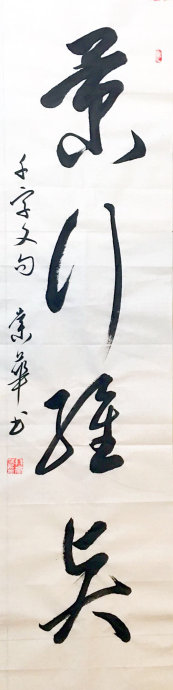 景行維賢
千字文句 華書